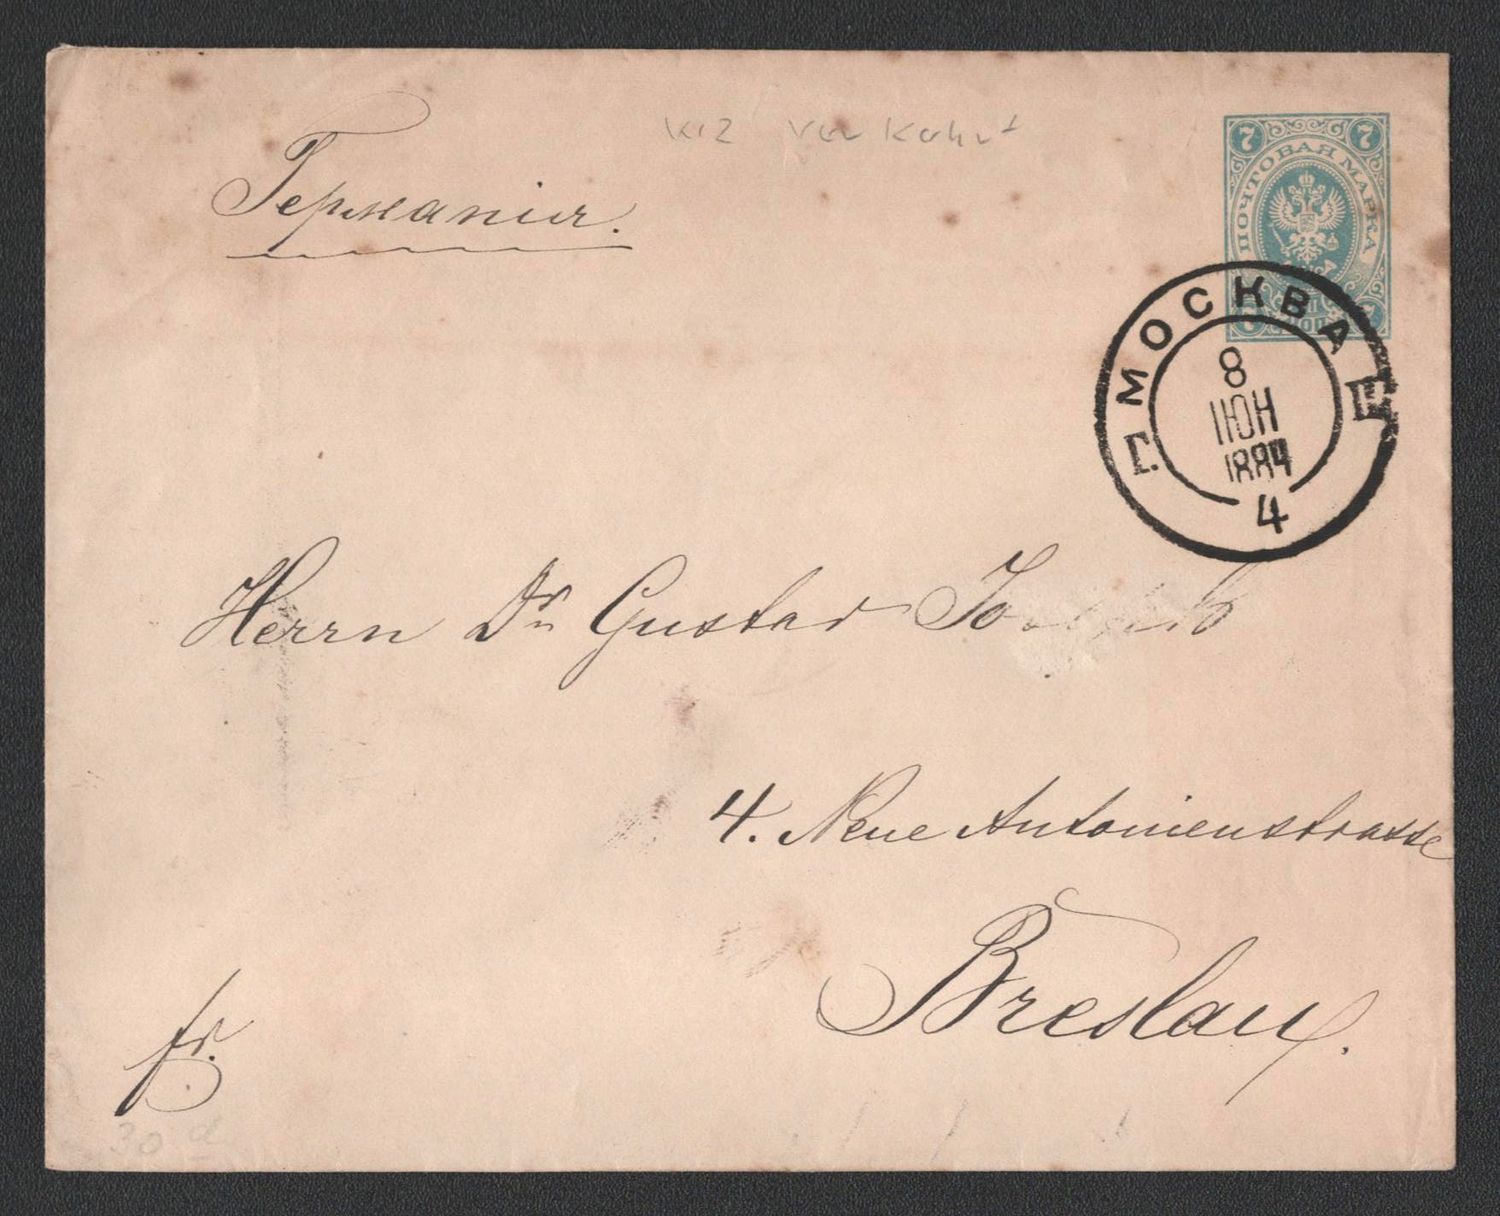 Германія.
7 7
ПОЧТОВАЯ МАРКА
7 7
МОСКВА
8
ІЮН
1884
4
Herrn Dr Gustav
4. Neue Antonienstrasse
Breslau.
fr.
30 d